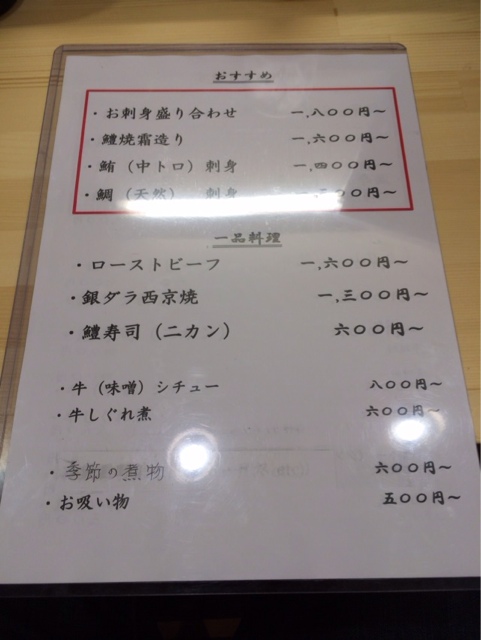 おすすめ
・お刺身盛り合わせ 一,八〇〇円～
・鱧焼霜造り 一,六〇〇円～
・鮪（中トロ）刺身 一,四〇〇円～
・鯛（天然） 刺身 〇〇円～
一品料理
・ローストビーフ 一,六〇〇円～
・銀ダラ西京焼 一,三〇〇円～
・鱧寿司（二カン） 六〇〇円～
・牛（味噌）シチュー 八〇〇円～
・牛しぐれ煮 六〇〇円～
・季節の煮物 六〇〇円～
・お吸い物 五〇〇円～